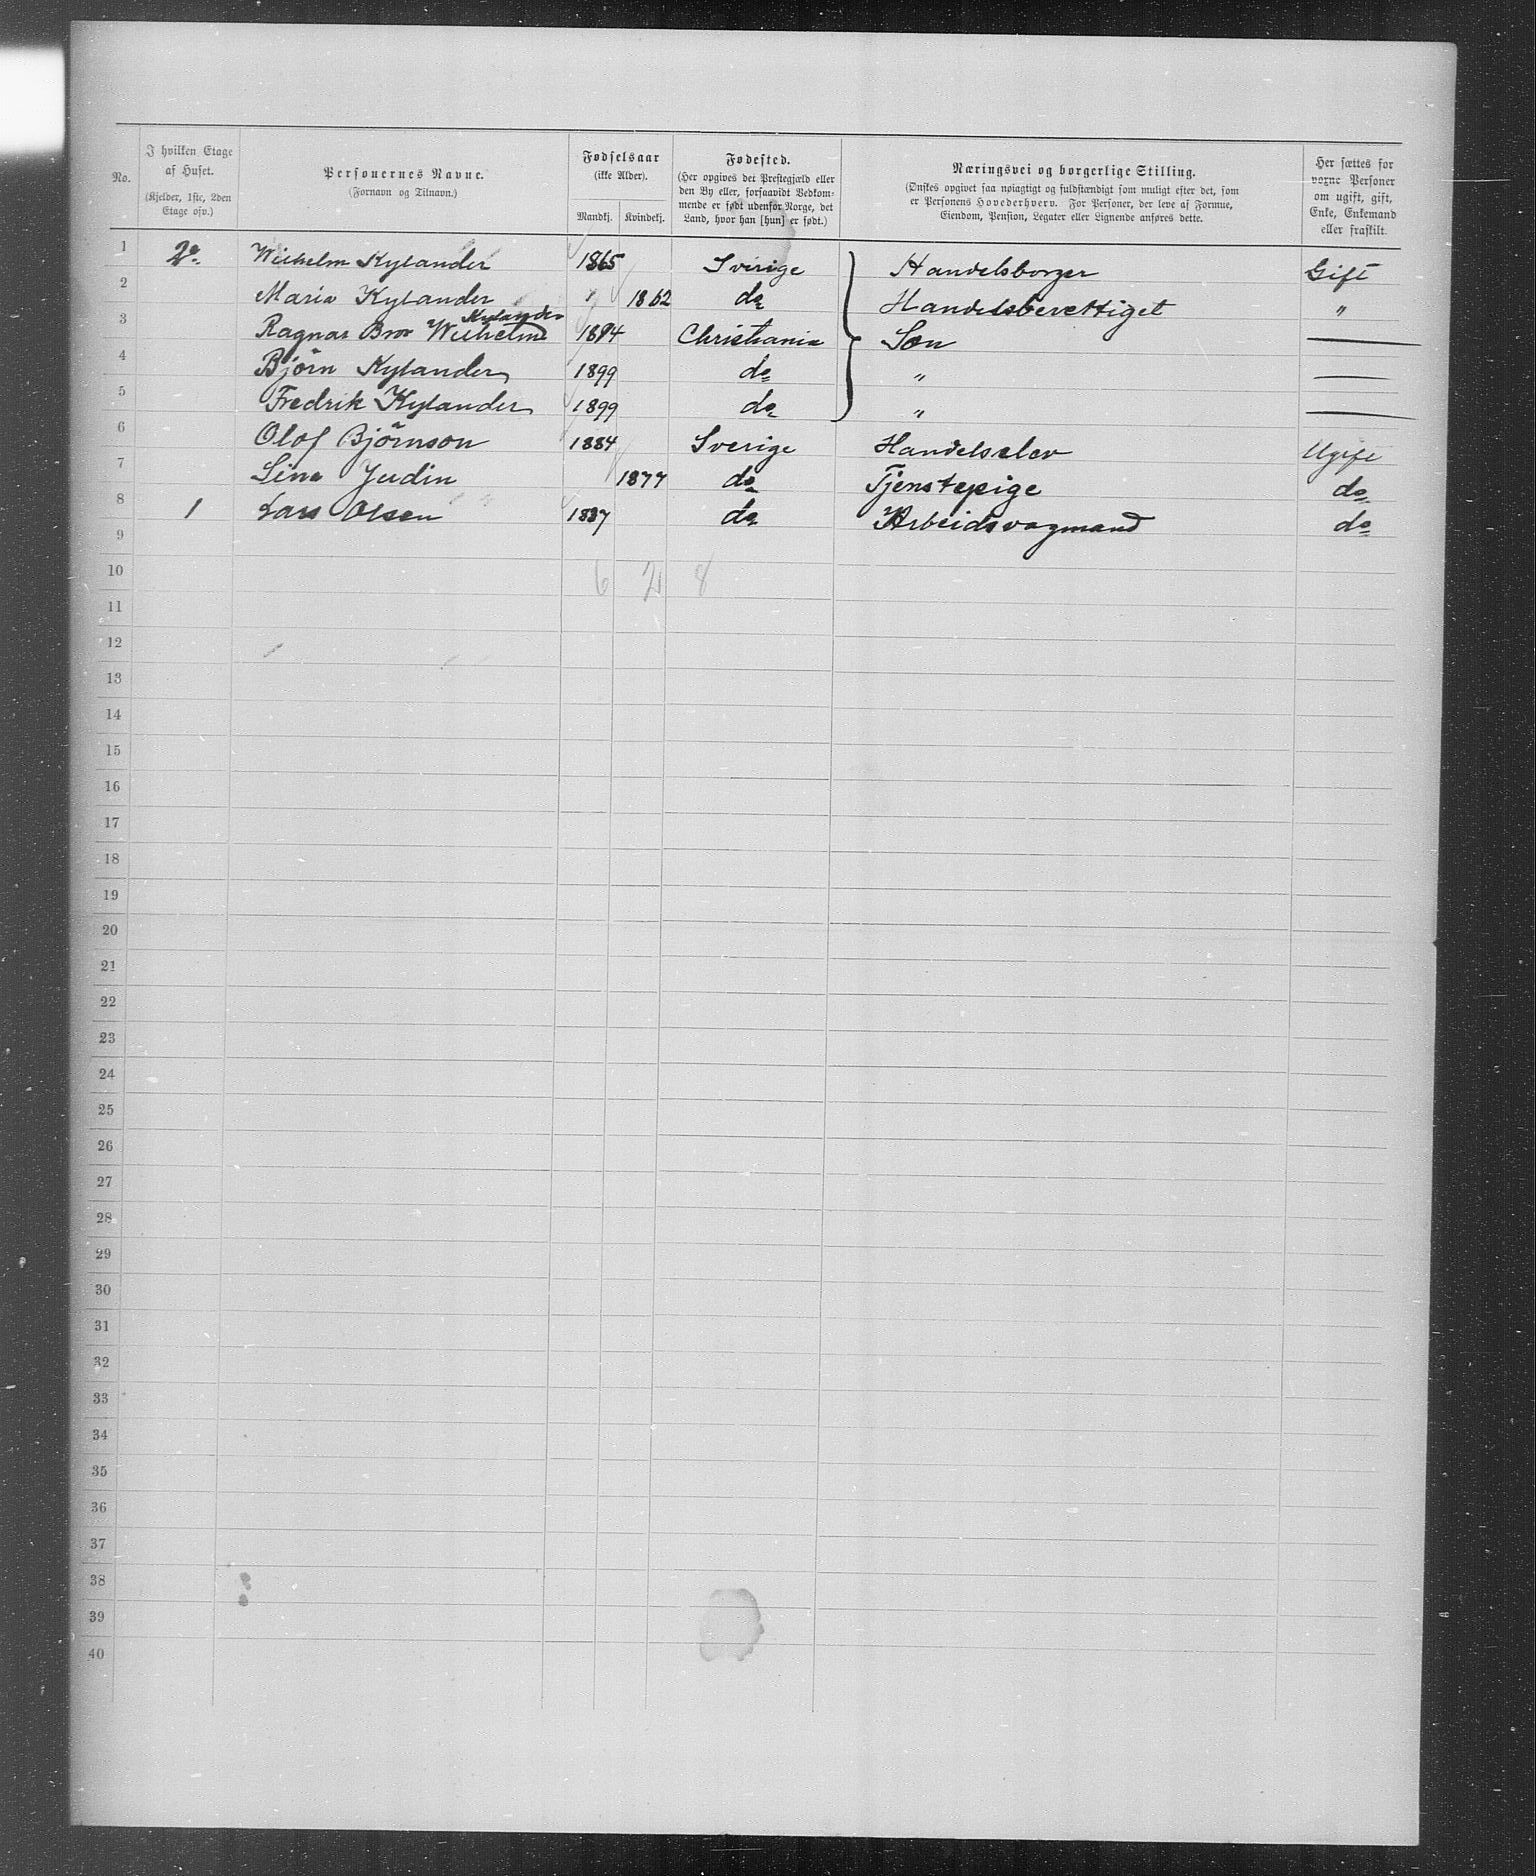 No. | I hvilken Etage af Huset. (Kjelder, 1ste, 2den Etage osv.) | Personernes Navne. (Fornavn og Tilnavn.) | Fødselsaar (ikke Alder). Mandkj. | Kvindekj. | Fødested. (Her opgives det Prestegjæld eller den By eller, forsaavidt Vedkommende er født udenfor Norge, det Land, hvor han [hun] er født.) | Næringsvei og borgerlige Stilling. (Ønskes opgivet saa nøiagtigt og fuldstændigt som muligt efter det, som er Personens Hovederhverv. For Personer, der leve af Formue, Eiendom, Pension, Legater eller Lignende anføres dette. | Her sættes for voxne Personer om ugift, gift, Enke, Enkemand eller fraskilt.
1 2e. Wilhelm Kylander 1865 Sverige Handelsborger Gift
2 Maria Kylander 1862 do Handelsberettiget "
Kylander
3 Ragnar Bror Wilhelm 1894 Christiania Søn —
4 Björn Kylander 1899 do " —
5 Fredrik Kylander 1899 do " —
6 Olof Björnson 1884 Sverige Handelselev Ugift
7 Lina Judin 1877 do Tjenstepige do
8 1 Lars Olsen 1887 do Arbeidsvogmand do
9
10 6 2 8
11
12
13
14
15
16
17
18
19
20
21
22
23
24
25
26
27
28
29
30
31
32
33
34
35
36
37
38
39
40